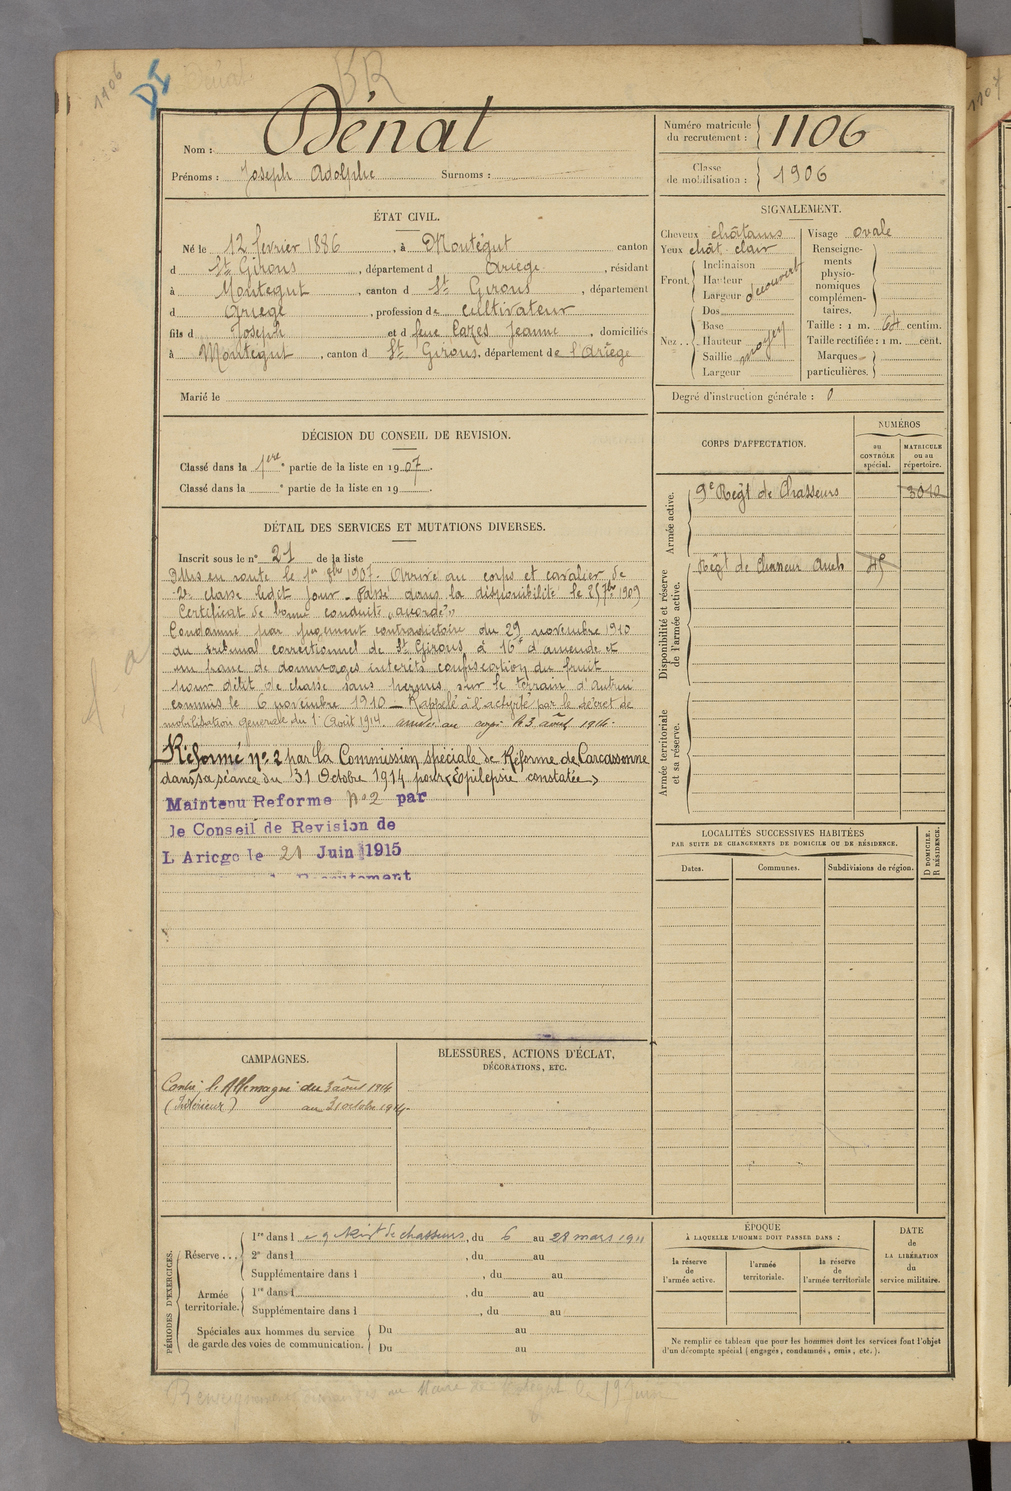 1106
DI
BR
1107
Nom : Dénat
Prénoms : Joseph Adolphe Surnoms :
Numéro matricule du recrutement : 1106
Classe de mobilisation : 1906
ÉTAT CIVIL.
Né le 12 février 1886, à Montégut canton
d St Girons, département d Ariège, résidant
à Montegut, canton d St Girons, département
d Ariège, profession de cultivateur
fils d Joseph et d feue Cazes Jeanne, domiciliés
à Montégut, canton d St Girons, département de l'Ariège
Marié le
SIGNALEMENT.
Cheveux châtains
Yeux chât. clair
Front. Inclinaison
Hauteur
Largeur découvert
Nez.. Dos
Base
Hauteur
Saillie moyen
Largeur
Visage ovale
Renseigne-
ments
physio-
nomiques
complémen-
taires.
Taille : 1 m. 64 centim.
Taille rectifiée : 1 m. cent.
Marques
particulières.
Degré d'instruction générale : 0
DÉCISION DU CONSEIL DE REVISION.
Classé dans la 1ère partie de la liste en 1907.
Classé dans la e partie de la liste en 19 .
DÉTAIL DES SERVICES ET MUTATIONS DIVERSES.
Inscrit sous le n° 21 de la liste
Mis en route le 1er 8bre 1907. Arrivé au corps et cavalier de
2e classe ledit jour. Passé dans la disponibilité le 25 7bre 1909
Certificat de bonne conduite "accordé".
Condamné par jugement contradictoire du 29 novembre 1910
du tribunal correctionnel de St Girons à 16f d'amende et
un franc de dommages intérêts confiscation du fruit
pour délit de chasse sans permis sur le terrain d'autrui
commis le 6 novembre 1910 — Rappelé à l'activité par le décret de
mobilisation générale du 1er Août 1914. arrivé au corps le 3 août 1914.
Réformé n° 2 par la Commission spéciale de Réforme de Carcassonne
dans sa séance du 31 Octobre 1914 pour « Epilepsie constatée »
Maintenu Reforme N° 2 par
le Conseil de Revision de
L Ariege le 21 Juin 1915
Recrutement
CORPS D'AFFECTATION.
NUMÉROS
au CONTRÔLE spécial.
MATRICULE ou au répertoire.
Armée active.
9e Régt de Chasseurs 3012
Disponibilité et réserve de l'armée active.
Régt de Chasseurs Auch 45
Armée territoriale et sa réserve.
LOCALITÉS SUCCESSIVES HABITÉES
PAR SUITE DE CHANGEMENTS DE DOMICILE OU DE RÉSIDENCE.
D DOMICILE.
R RÉSIDENCE.
Dates. Communes. Subdivisions de région.
CAMPAGNES.
Contre l'Allemagne du 3 août 1914
(Intérieur) au 31 octobre 1914
BLESSURES, ACTIONS D'ÉCLAT,
DÉCORATIONS, ETC.
PÉRIODES D'EXERCICES.
Réserve... 1re dans l e 9 Régt de chasseurs, du 6 au 28 mars 1911
2e dans l , du au
Supplémentaire dans l , du au
Armée territoriale. 1re dans l , du au
Supplémentaire dans l , du au
Spéciales aux hommes du service
de garde des voies de communication. Du au
Du au
ÉPOQUE
À LAQUELLE L'HOMME DOIT PASSER DANS :
la réserve de l'armée active.
l'armée territoriale.
la réserve de l'armée territoriale
DATE
de
LA LIBÉRATION
du
service militaire.
Ne remplir ce tableau que pour les hommes dont les services font l'objet
d'un décompte spécial (engagés, condamnés, omis, etc.).
au Maire de le 19 juin